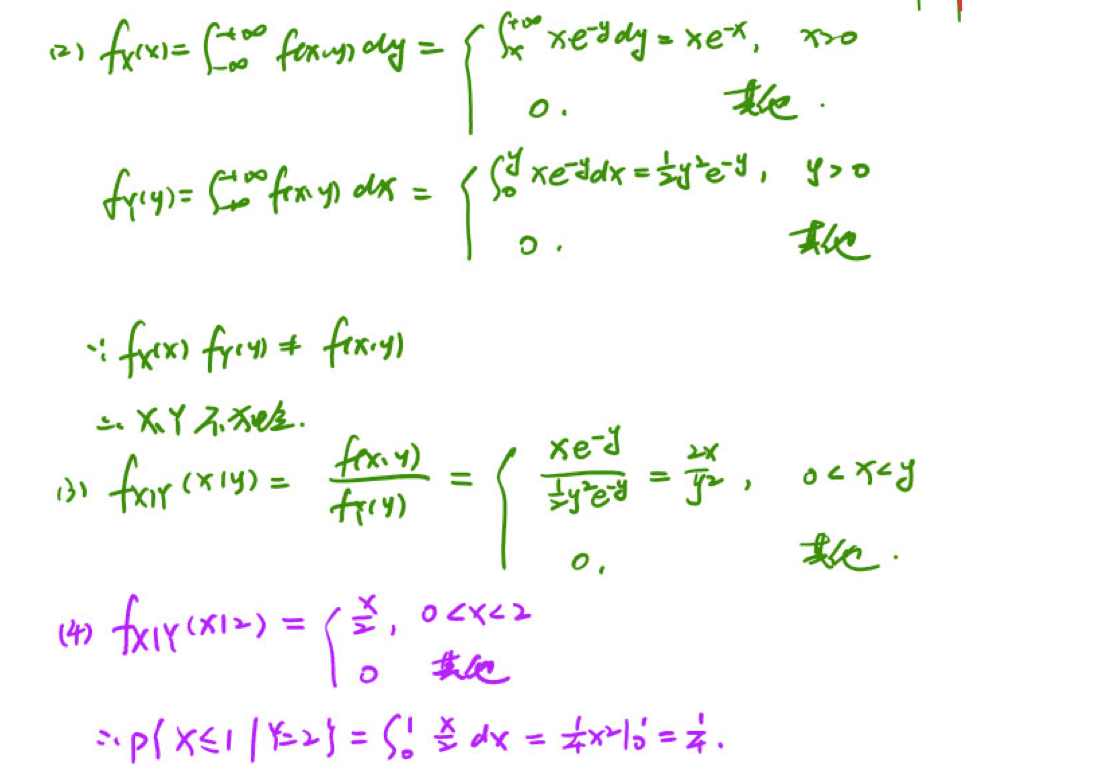 (2) fX(x)= ∫_{-∞}^{+∞} f(x,y) dy = { ∫_x^{+∞} xe^{-y}dy = xe^{-x}, x>0
0. 其他.
fY(y)= ∫_{-∞}^{+∞} f(x,y) dx = { ∫_0^y xe^{-y}dx = 1/2 y²e^{-y}, y>0
0. 其他
∵ fX(x) fY(y) ≠ f(x,y)
∴ X,Y 不独立.
(3) fX|Y(x|y) = f(x,y)/fY(y) = { xe^{-y}/(1/2 y²e^{-y}) = 2x/y², 0<x<y
0, 其他.
(4) fX|Y(x|2) = { x/2, 0<x<2
0 其他
∴ P{X≤1|Y=2} = ∫_0^1 x/2 dx = 1/4 x²|_0^1 = 1/4.